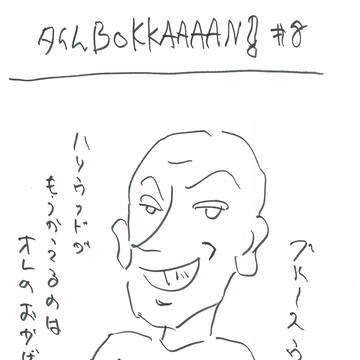 タイムBOKKAAAAN!! #8
ブルースウ
ハリウッドが
もうかってるのは
オレのおかげ